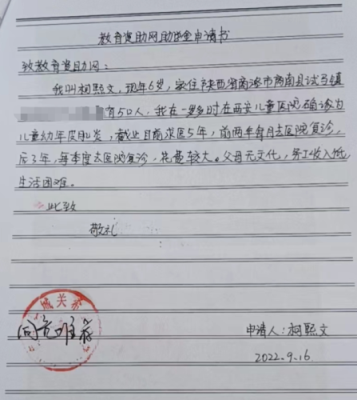 教育资助网助学金申请书
致教育资助网:
我叫柯熙文,现年6岁,家住陕西省商洛市商南县试马镇
有50人,我在一岁多时在西安儿童医院确诊为
儿童幼年皮肌炎,截止目前求医5年,前两年每月去医院复诊,
后3年,每季度去医院复诊,花费较大。父母无文化,务工收入低,
生活困难。
此致
敬礼
城关
同意推荐
申请人:柯熙文
2022.9.16